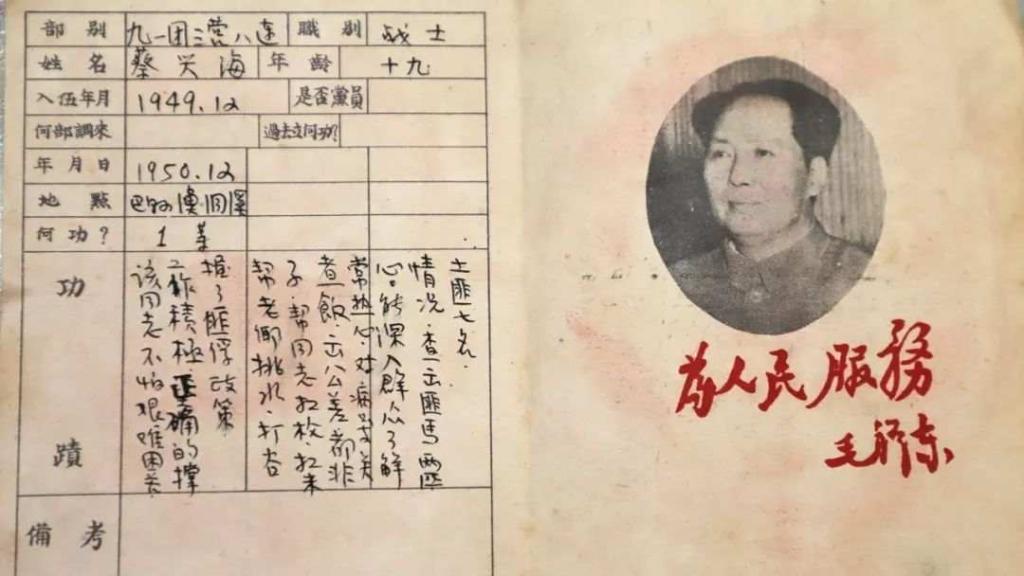 部別 九一团三营八连 職別 战士
姓名 蔡兴海 年齡 十九
入伍年月 1949.12 是否黨員
何部調來 過去立何功?
年月日 1950.12
地點 洞溪
何功? 1 等
功蹟
该同志不怕艰难困苦
工作積極正确的撑
握了匪俘政策
帮老鄉挑水.打谷
子.帮同志扛枚扛米
煮飯.出公差都非
常热心.对病号关
心.能深入群众了解
情况.查出匪馬兩匹
土匪七名.
備考
为人民服務
毛泽东